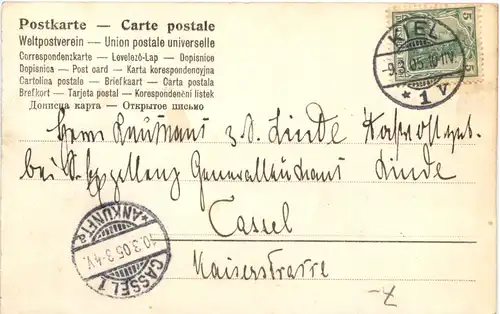 Postkarte — Carte postale
Weltpostverein — Union postale universelle
Correspondenzkarte — Levelező-Lap — Dopisnice
Dopisnica — Post card — Karta korespondencyjna
Cartolina postale — Briefkaart — Carta postala
Brefkort — Tarjeta postal — Korespondenční listek
Дописна карта — Открытое письмо
5
5
KIEL
9.3.05.10-11V.
* 1 v
Herrn Leutnant z. S. Linde
bei Sr. Exzellenz Generalleutnant Linde
Cassel
Kaiserstrasse
*ANKUNFT*
10.3.05 3-4V.
CASSEL 1